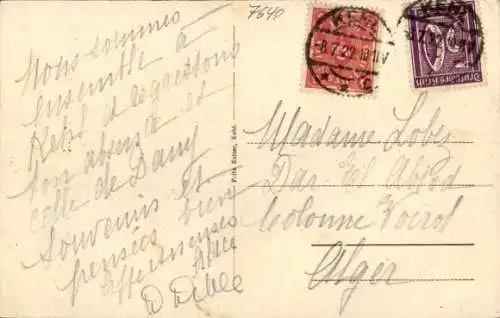 7640
Nous sommes
ensemble à
Kehl et regrettons
ton absence et
celle de Dany
Souvenirs et
pensées bien
affectueuses
D Dible
Fritz Kaiser, Kehl.
KEHL
8.7.22
KEHL
Madame Lober
Dar El
Colonne Voirol
Alger